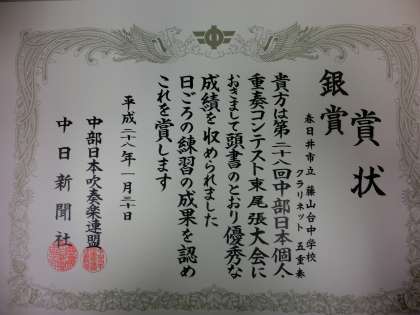 賞状
銀賞
春日井市立 藤山台中学校
クラリネット 五重奏
貴方は第二十八回中部日本個人・
重奏コンテスト東尾張大会に
おきまして頭書のとおり優秀な
成績を収められました
日ごろの練習の成果を認め
これを賞します
平成二十八年一月三十日
中部日本吹奏楽連盟
中日新聞社